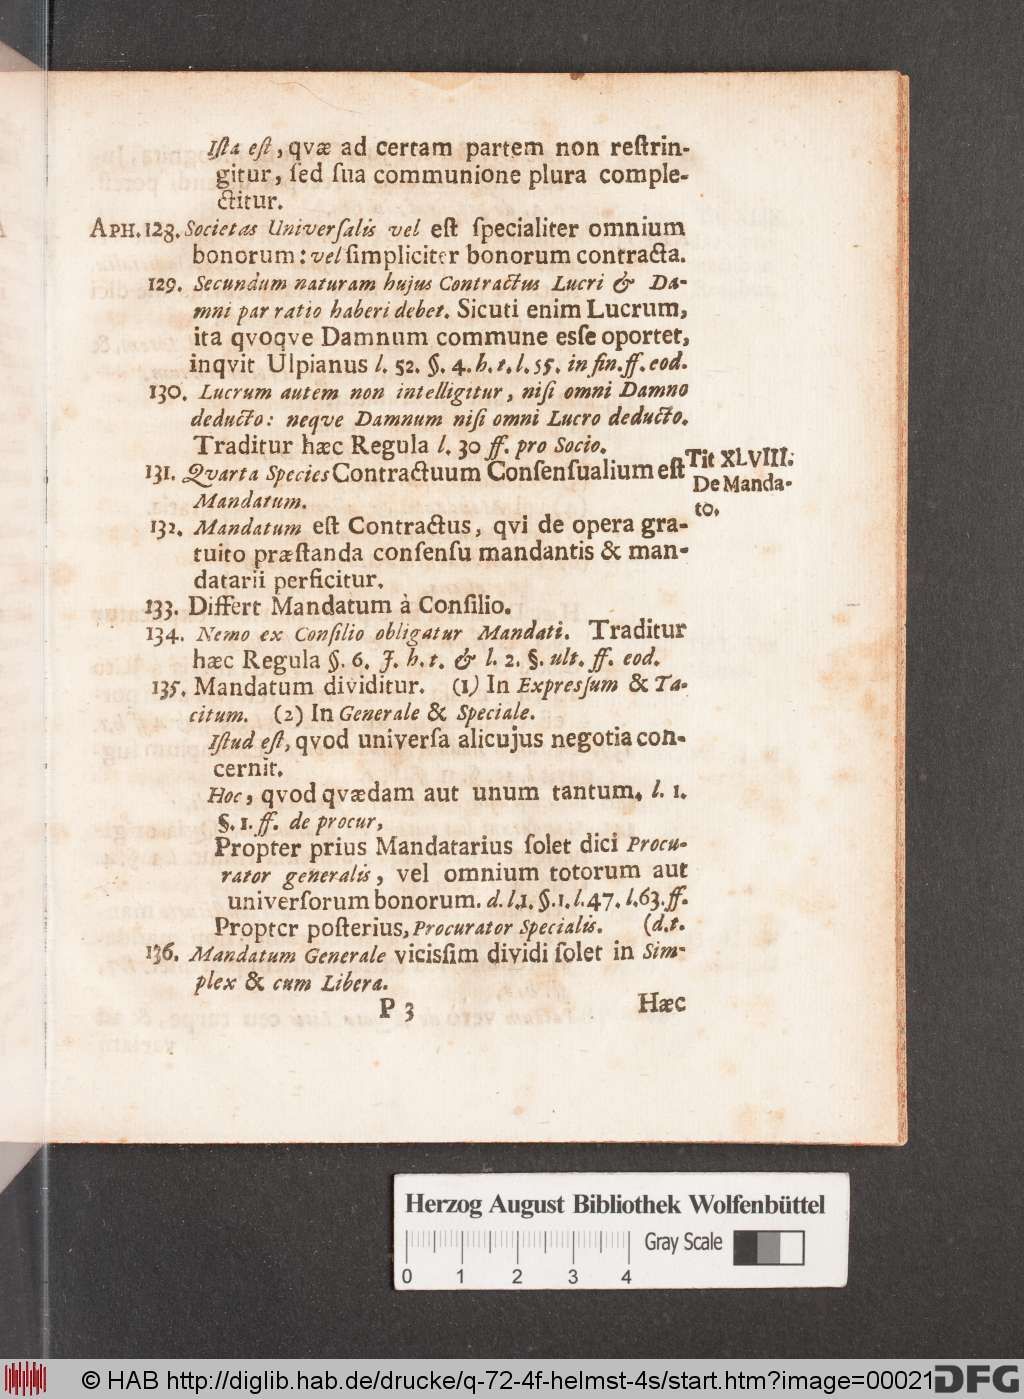 Iſta eſt, qvæ ad certam partem non reſtrin-
gitur, ſed ſua communione plura comple-
ctitur.
APH. 128. Societas Univerſalis vel eſt ſpecialiter omnium
bonorum: vel ſimpliciter bonorum contracta.
129. Secundum naturam hujus Contractus Lucri & Da-
mni par ratio haberi debet. Sicuti enim Lucrum,
ita qvoqve Damnum commune esſe oportet,
inqvit Ulpianus l. 52. §. 4. h. t. l. 55. in fin. ff. eod.
130. Lucrum autem non intelligitur, niſi omni Damno
deducto: neqve Damnum niſi omni Lucro deducto.
Traditur hæc Regula l. 30 ff. pro Socio.
131. Qvarta Species Contractuum Conſenſualium eſt
Mandatum.
Tit XLVIII.
De Manda-
to.
132. Mandatum eſt Contractus, qvi de opera gra-
tuito præſtanda conſenſu mandantis & man-
datarii perficitur.
133. Differt Mandatum à Conſilio.
134. Nemo ex Conſilio obligatur Mandati. Traditur
hæc Regula §. 6. J. h. t. & l. 2. §. ult. ff. eod.
135. Mandatum dividitur. (1) In Expreſſum & Ta-
citum. (2) In Generale & Speciale.
Iſtud eſt, qvod univerſa alicujus negotia con-
cernit.
Hoc, qvod qvædam aut unum tantum. l. 1.
§. 1. ff. de procur,
Propter prius Mandatarius ſolet dici Procu-
rator generalis, vel omnium totorum aut
univerſorum bonorum. d. l. 1. §. 1. l. 47. l. 63. ff.
Propter poſterius, Procurator Specialis. (d. t.
136. Mandatum Generale vicisſim dividi ſolet in Sim-
plex & cum Libera.
P 3 Hæc
Herzog August Bibliothek Wolfenbüttel
Gray Scale
0 1 2 3 4
© HAB http://diglib.hab.de/drucke/q-72-4f-helmst-4s/start.htm?image=00021
DFG